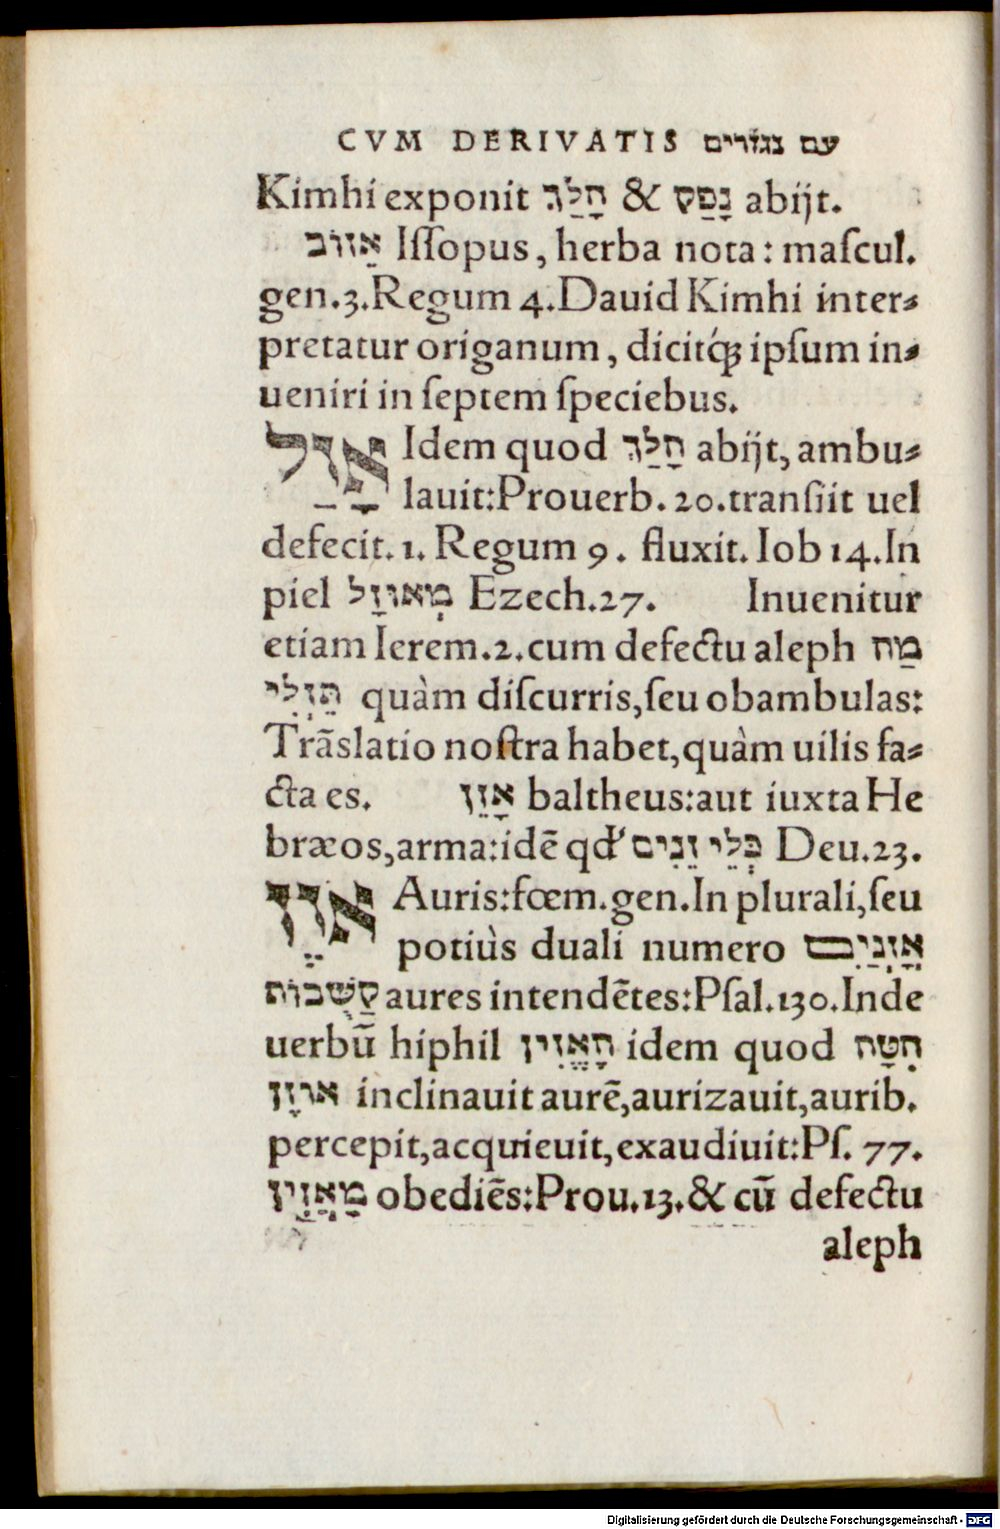 CVM DERIVATIS עם נגזרים
Kimhi exponit הָלַךְ & נָפַק abijt.
אֵזוֹב Iſſopus, herba nota: maſcul.
gen.3.Regum 4.Dauid Kimhi inter⸗
pretatur origanum, dicitq́ꝫ ipſum in⸗
ueniri in ſeptem ſpeciebus.
אָזַל Idem quod הָלַךְ abijt, ambu⸗
lauit:Prouerb. 20.tranſiit uel
defecit. 1. Regum 9. fluxit. Iob 14.In
piel מְאוּזָל Ezech.27. Inuenitur
etiam Ierem.2.cum defectu aleph מַה
תֵּזְלִי quàm diſcurris,ſeu obambulas:
Trãſlatio noſtra habet,quàm uilis fa⸗
cta es. אָזֵן baltheus:aut iuxta He
bræos,arma:idẽ qd' כְּלֵי זֵנִים Deu.23.
אֹזֶן Auris:fœm.gen.In plurali,ſeu
potiùs duali numero אָזְנַיִם
קַשֻּׁבוֹת aures intendẽtes:Pſal.130.Inde
uerbũ hiphil הֶאֱזִין idem quod הִטָּה
אוזן inclinauit aurẽ,aurizauit,aurib.
percepit,acquieuit,exaudiuit:Pſ. 77.
מַאֲזִין obediẽs:Prou.13.& cũ defectu
aleph
Digitalisierung gefördert durch die Deutsche Forschungsgemeinschaft - DFG